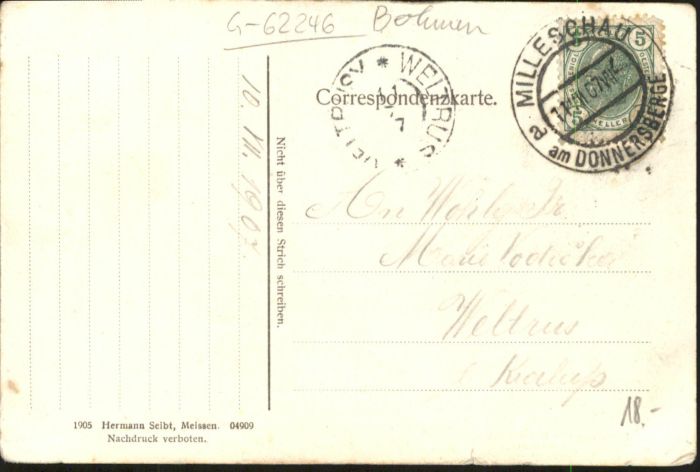 G-62246 Bohmen
MILLESCHAU
am DONNERSBERGE
a
5 5
5
HELLER
WELTRUS
*
*
Correspondenzkarte.
10. VII. 1907.
Nicht über diesen Strich schreiben.
An Wohlgeb. Fr.
Marie
Weltrus
Kralup
18.-
1905 Hermann Seibt, Meissen. 04909
Nachdruck verboten.